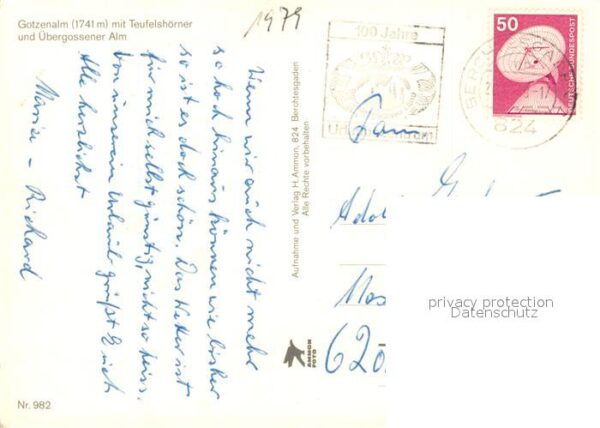 Gotzenalm (1741 m) mit Teufelshörner
und Übergossener Alm
1979
Wenn wir auch nicht mehr
so hoch hinaus können wie bisher
so ist es doch schön. Das Wetter ist
für mich selbst günstig, nicht so heiss.
Von unserem Urlaub grüßt Euch
Alle herzlichst
Marie - Richard
Aufnahme und Verlag H. Ammon, 824 Berchtesgaden
Alle Rechte vorbehalten
AMMON
FOTO
Nr. 982
100 Jahre
50
DEUTSCHE BUNDESPOST
BERCH
824
Fam
Adol
Mos
620
privacy protection
Datenschutz